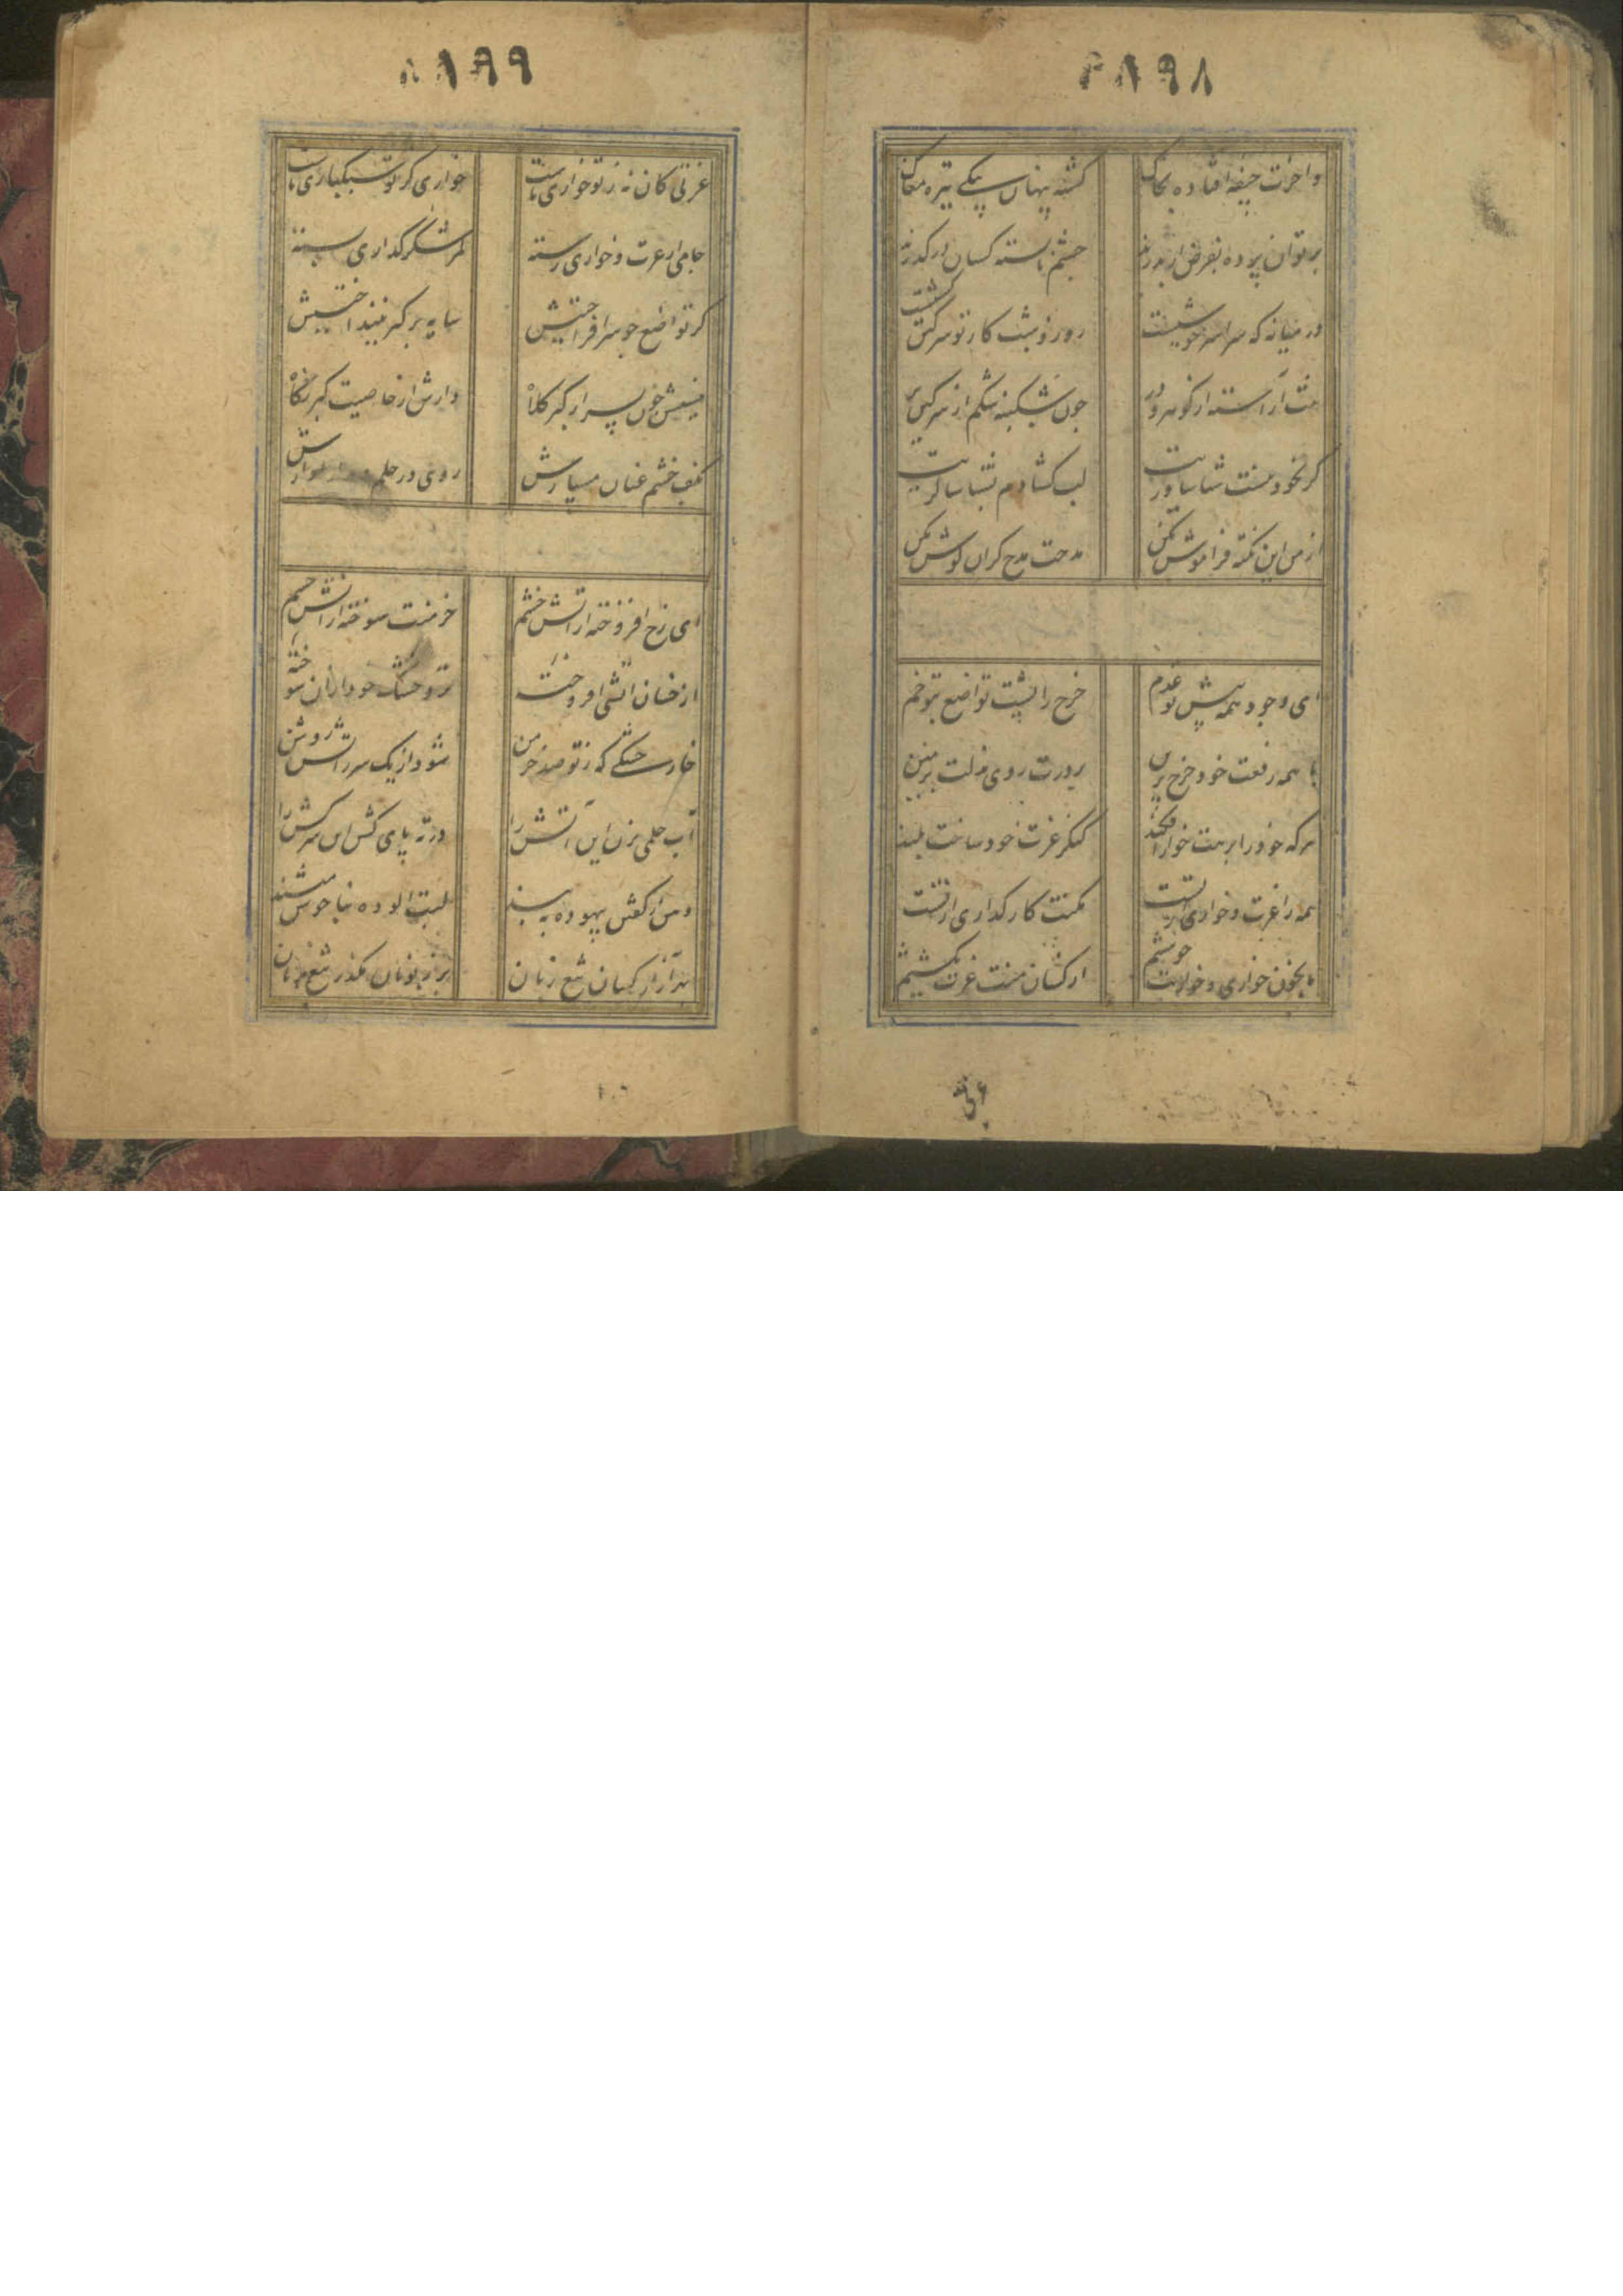 ۸۹۸
واخرت جیفه افتاده بخاک کشته پنهان به یکی تیره مغاک
بر تو آن پرده بفرض ار بدرند چشم نابسته کسان در گذرند
در میانه که سراسر خوشیست روز و شب کار تو سرکین کشیست
تنت آراسته از گوهر و در چون شکنبه شکم از سرکین پر
گر بخود نیست شناساوریت لب گشادم بشناساگریت
از من این نکته فراموش مکن مدحت مدح گران گوش مکن
ای وجود همه پیش تو عدم چرخ را پشت تواضع بتو خم
با همه رفعت خود چرخ برین بر درت روی مذلت بزمین
هرکه خود را برهت خوار افکند کنگر عزت خود ساخت بلند
همه را عزت و خواری ز تست مکنت کارگذاری از تست
ما بخون خواری و خواریت خوشیم از کسان منت عزت نکشیم
۸۹۹
عزتی کان نه ز تو خواری ماست خواری کز تو سبکباری ماست
جامی از عزت و خواری رسته کمر شکرگذاری بسته
گر تواضع چو سر افراختیش سایه بر کبر نینداختیش
منهش خوی بسر از کبر کلاه دارش از خاصیت کبر نگاه
بکف خشم عنان مسپارش روی در حلم
ای رخ افروخته از آتش خشم خرمنت سوخته از آتش خشم
از خسان آتشی افروخته تر و خشک خود از آن سوخته
خار خشکی که ز تو صد خرمن شود از یک شرر آتش روشن
آب حلمی بزن این آتش را در ته پای کش این سرکش را
دهن از گفتن بیهوده ببند لبت آلوده بناخوش مپسند
به آزار کسان تیغ زبان بر زبونان مگذر تیغ زنان